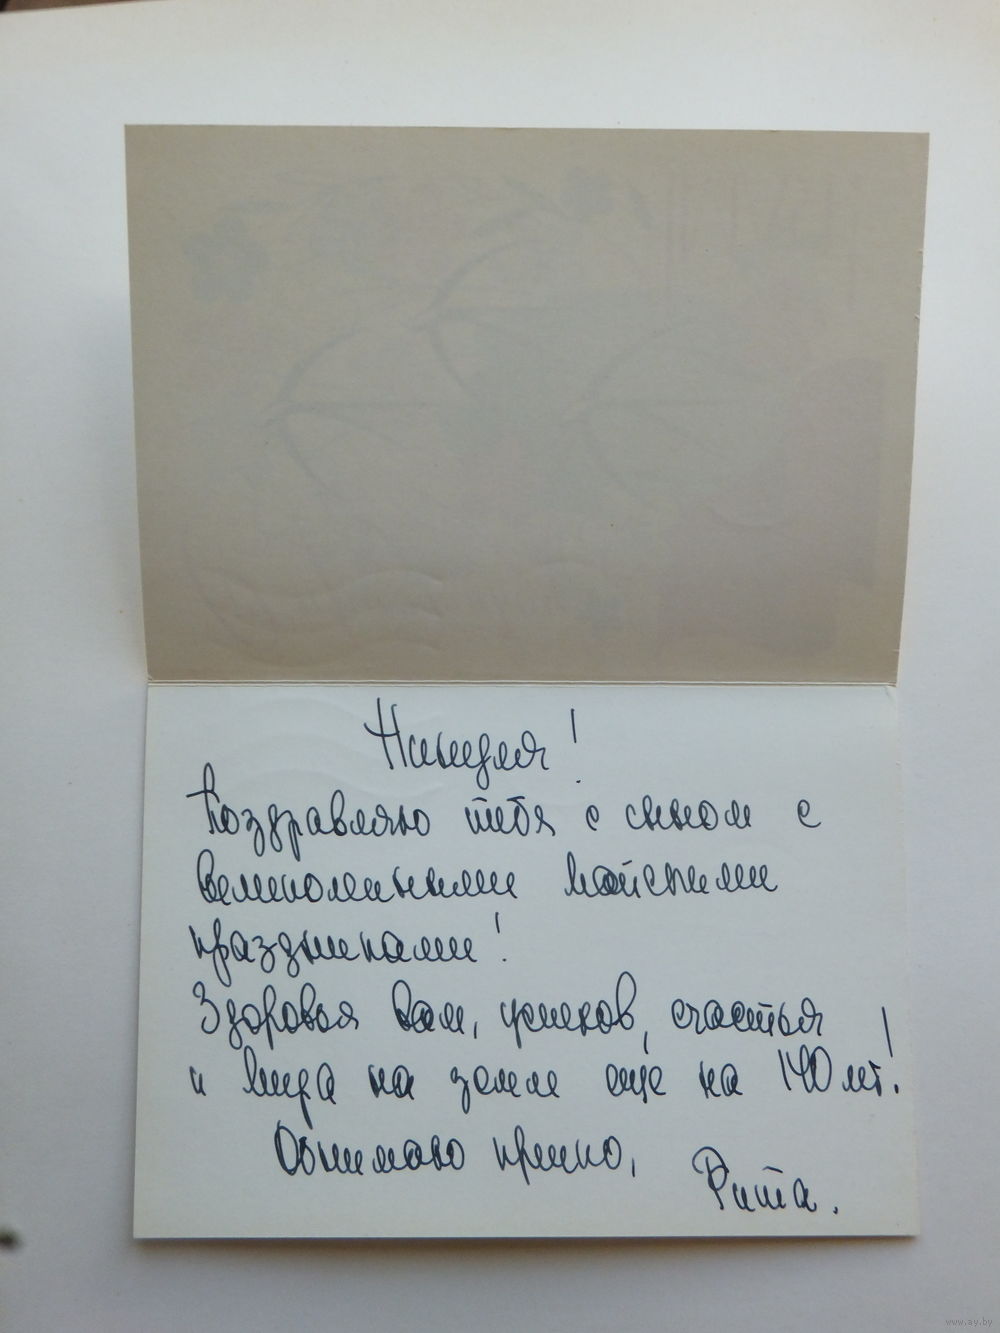 Нинуля!
Поздравляю тебя с сыном с
великолепными майскими
праздниками!
Здоровья вам, успехов, счастья
и мира на земле ещё на 140 лет!
Обнимаю крепко,
Рита.
www.ay.by